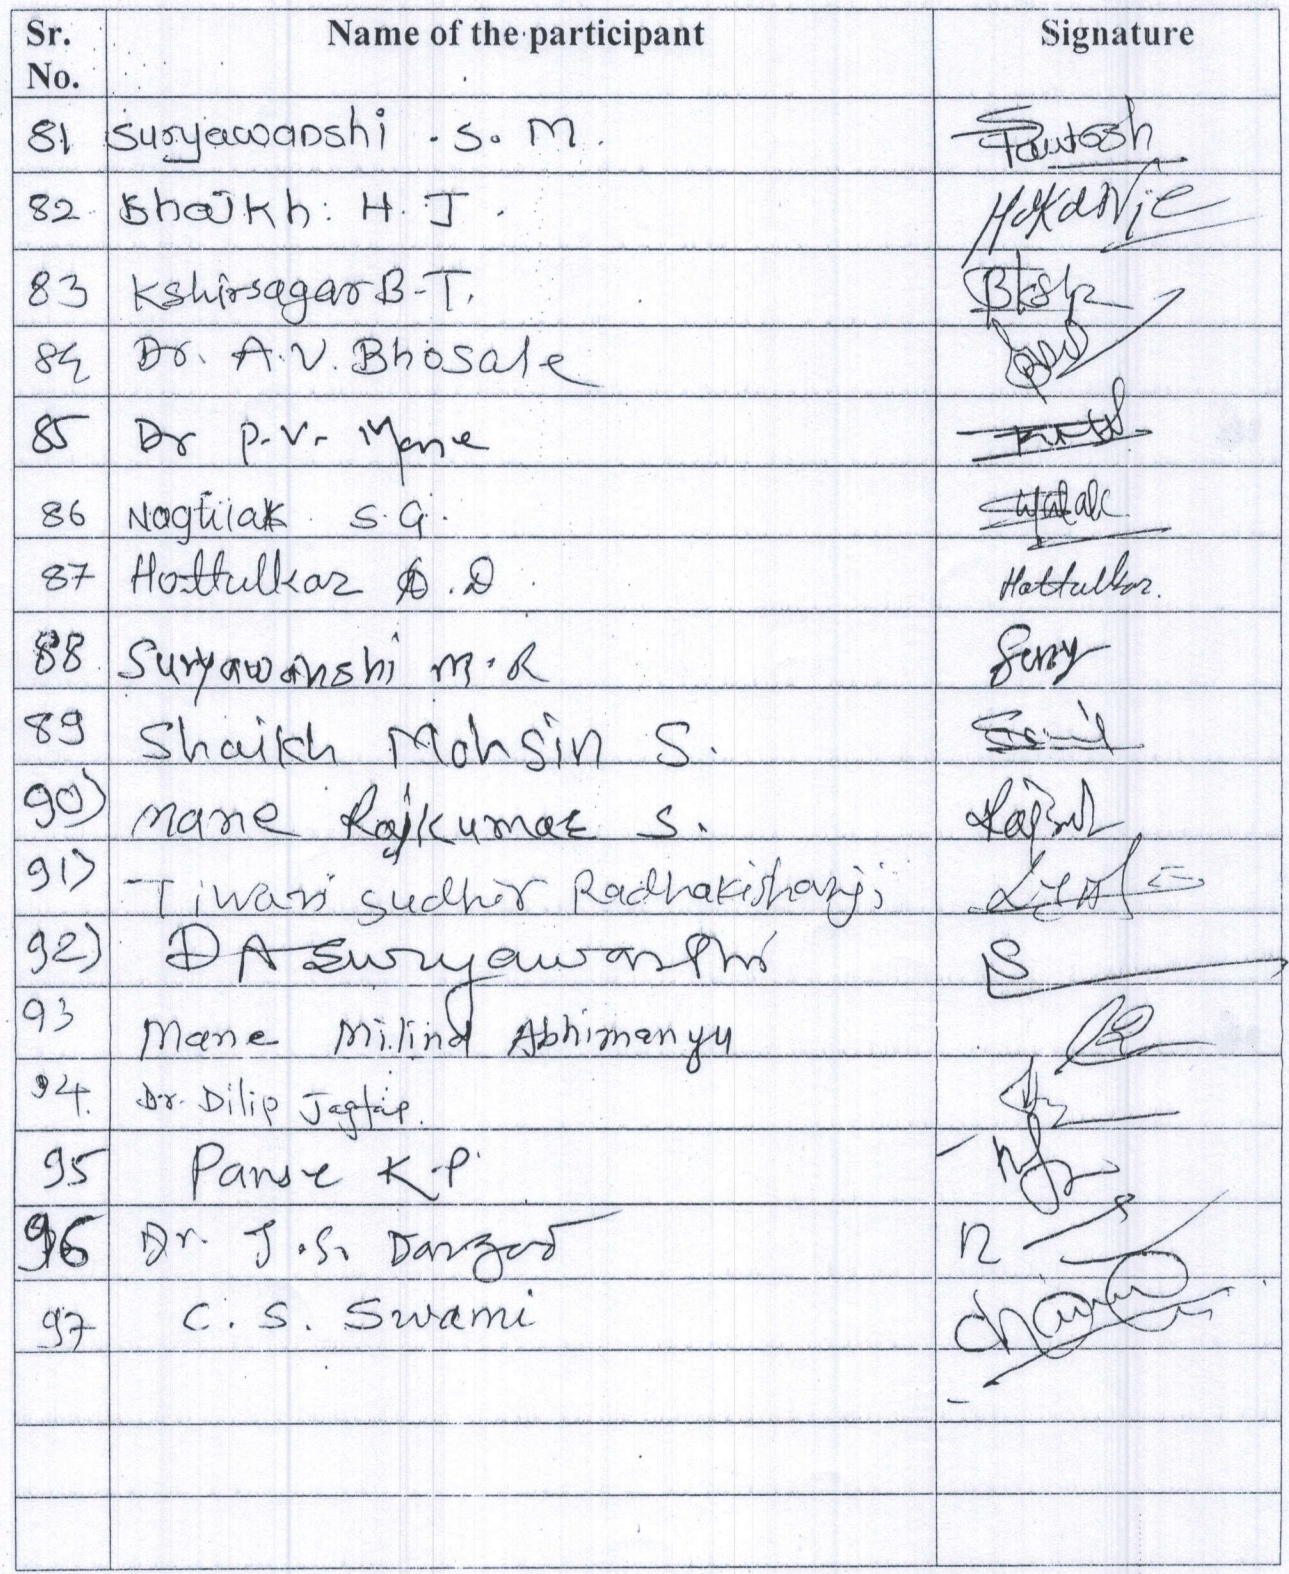 Sr. No. Name of the participant Signature
81 Suryawanshi . S. M.
82 Shaikh. H. J.
83 Kshirsagar B-T. Bksh
84 Dr. A.V. Bhosale
85 Dr P.V. Mane
86 Nagtilak S.G.
87 Hottulkar D.D. Hottulkar.
88 Suryawanshi M.R Sury
89 Shaikh Mohsin S.
90) Mane Rajkumar S.
91) Tiwari Sudhir Radhakishanji
92) D A Suryawanshi S
93 Mane Milind Abhimanyu
94. Dr. Dilip Jagtap.
95 Panse K.P.
96 Dr. J.S.
97 C. S. Swami